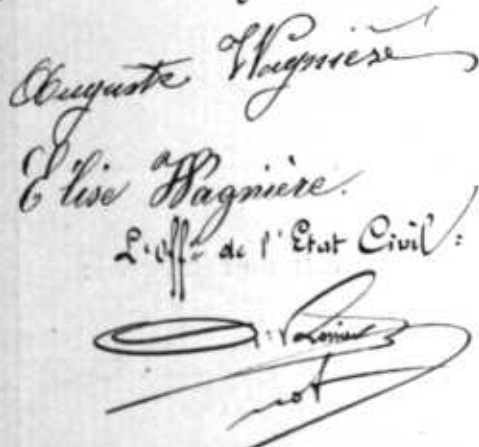 Auguste Wagnière
Elise Wagnière.
L'off.r de l'Etat Civil :
not